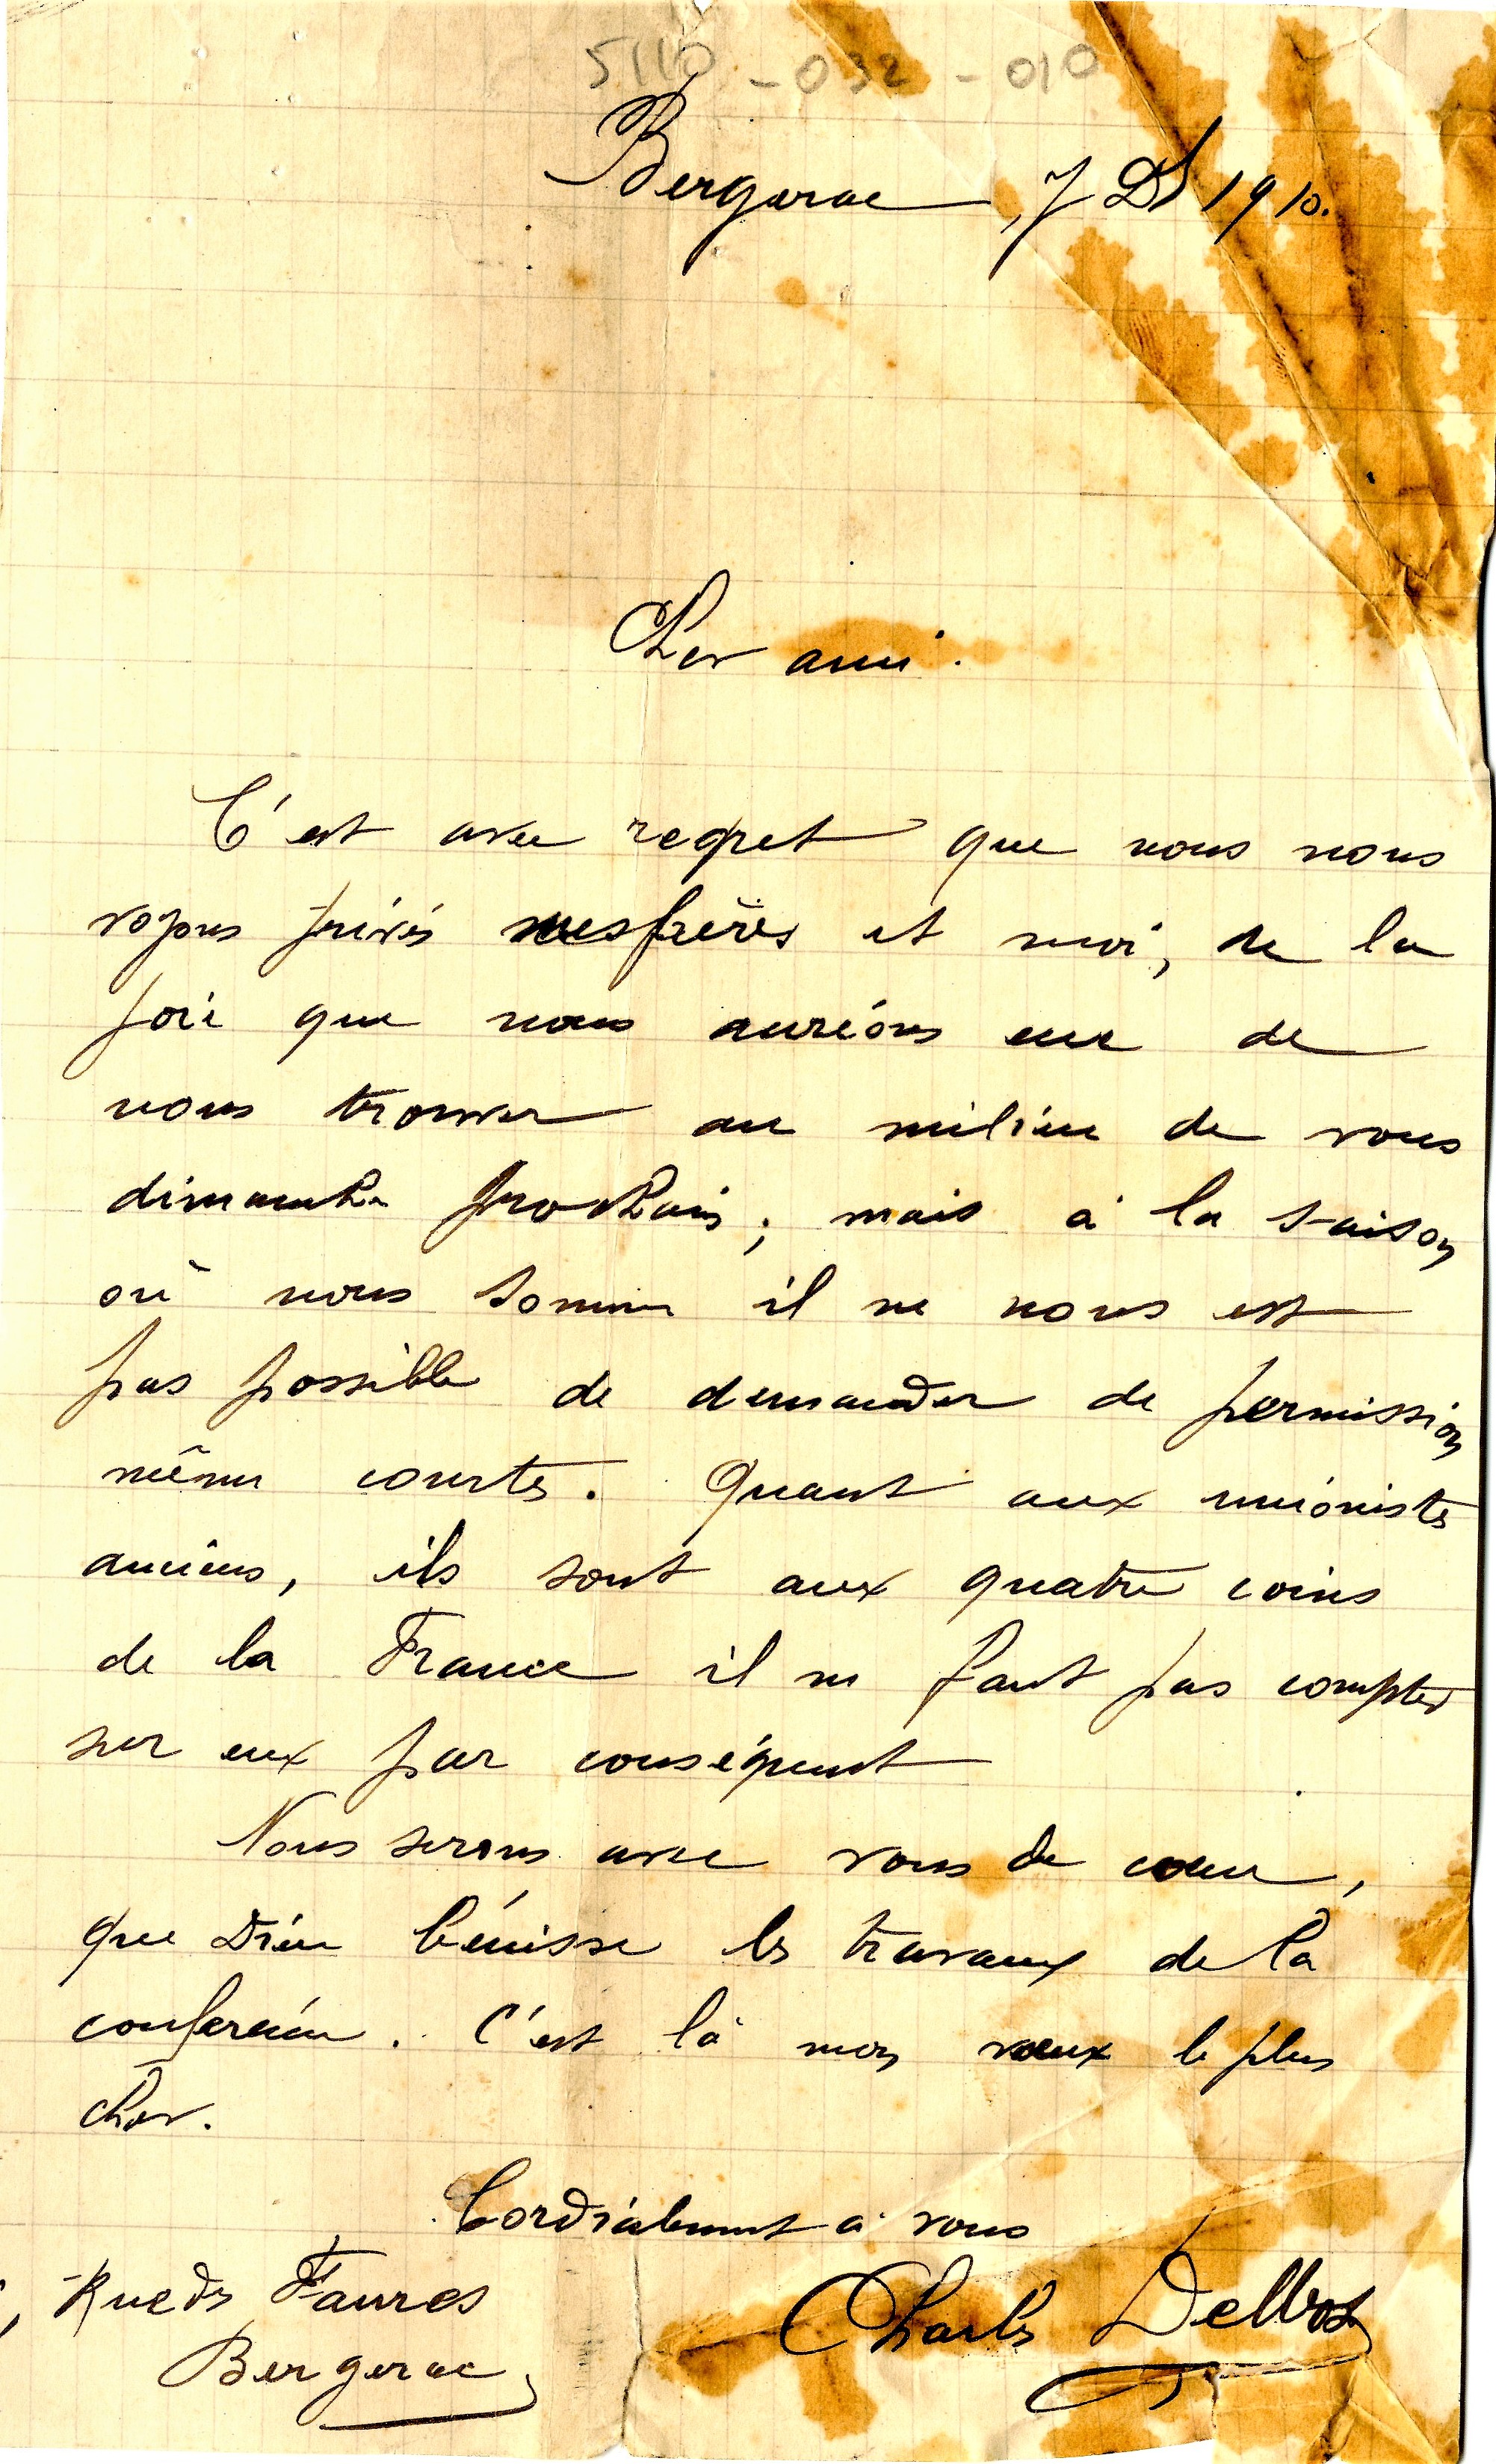 5110-032-010
Bergerac, 7 1910.
Cher ami.
C'est avec regret que nous nous
voyons privés mes frères et moi, de la
joie que nous aurions eue de
nous trouver au milieu de vous
dimanche prochain; mais à la saison
où nous sommes il ne nous est
pas possible de demander de permission
même courtes. Quant aux unionistes
anciens, ils sont aux quatre coins
de la France il ne faut pas compter
sur eux par conséquent
Nous serons avec vous de cœur,
que Dieu bénisse les travaux de la
conférence. C'est là mon vœux le plus
cher.
Cordialement à vous
Rue des Faures Charles
Bergerac